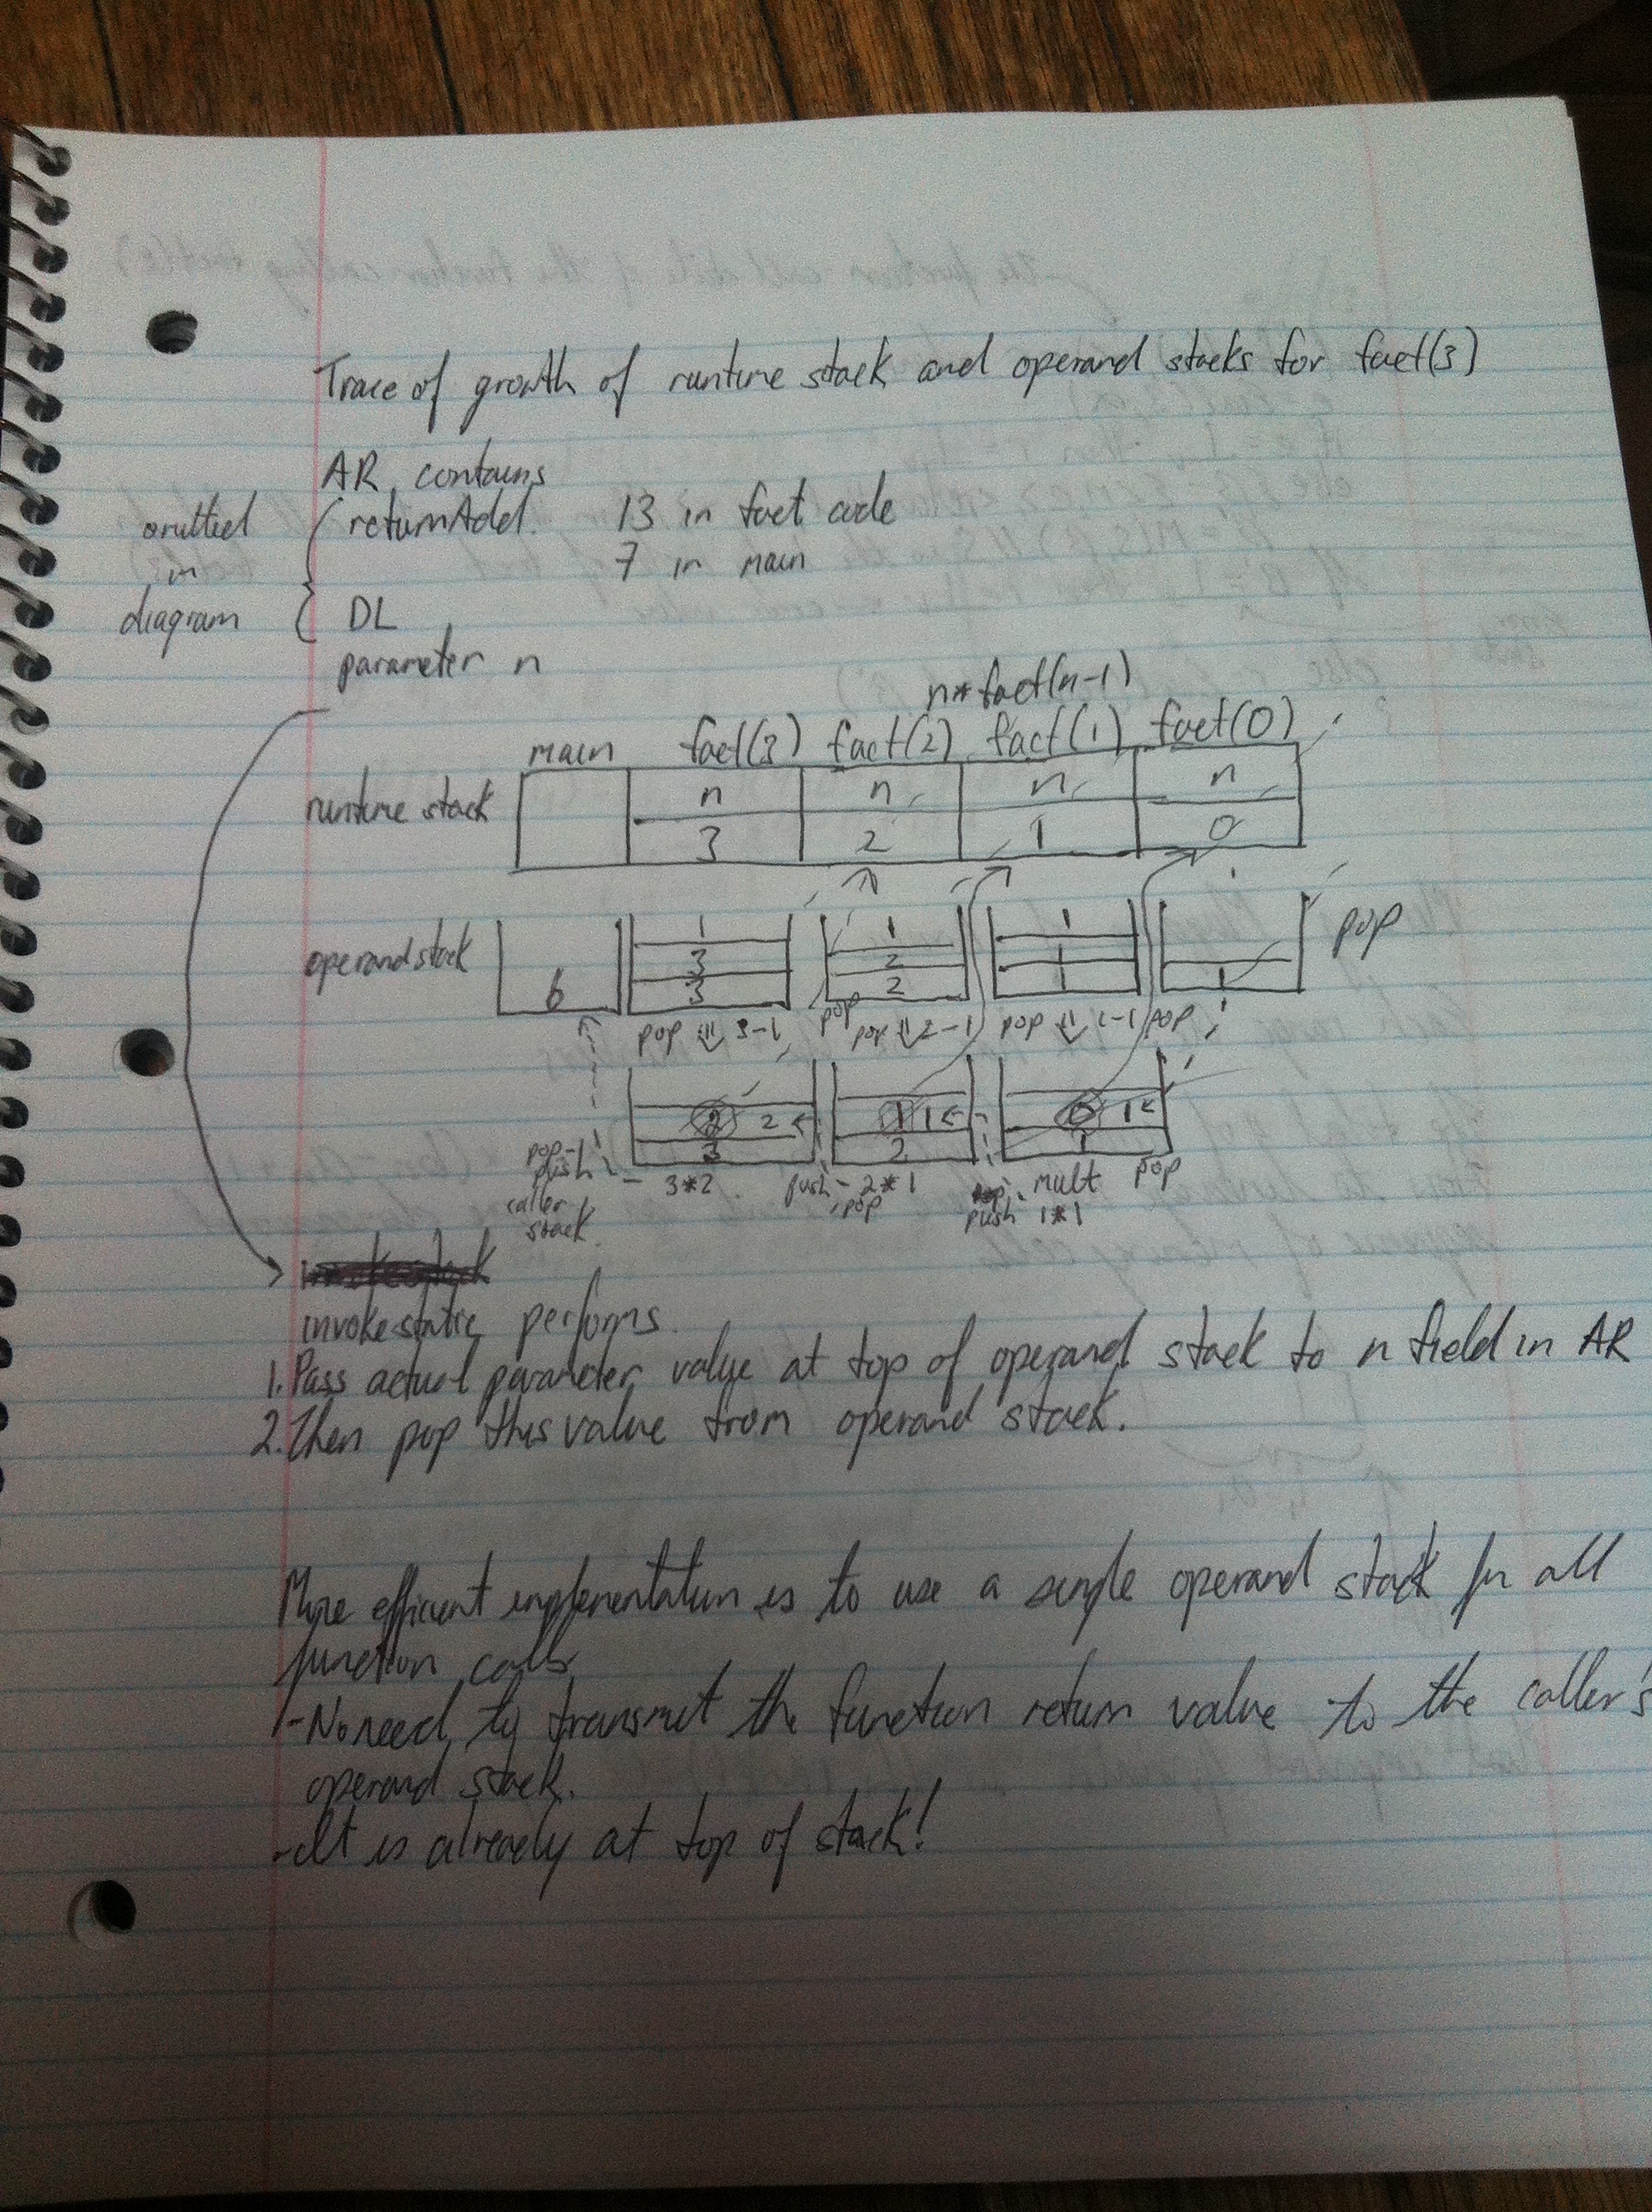 Trace of growth of runtime stack and operand stacks for fact(3)
AR contains
omitted in diagram { returnAdd. 13 in fact code
7 in main
DL
parameter n
n*fact(n-1)
main fact(3) fact(2) fact(1) fact(0)
runtime stack n n n n
3 2 1 0
operand stack 1 1 1 pop
3 2 1
6 3 2 1
pop 3-1 pop pop 2-1 pop 1-1 pop
2 2 1 1 0 1
3 2 1
pop push caller stack 3*2 push 2*1 pop push mult 1*1 pop
invokestatic performs
1. Pass actual parameter value at top of operand stack to n field in AR
2. Then pop this value from operand stack.
More efficient implementation is to use a single operand stack for all
function calls
- No need to transmit the function return value to the caller's
operand stack.
- It is already at top of stack!